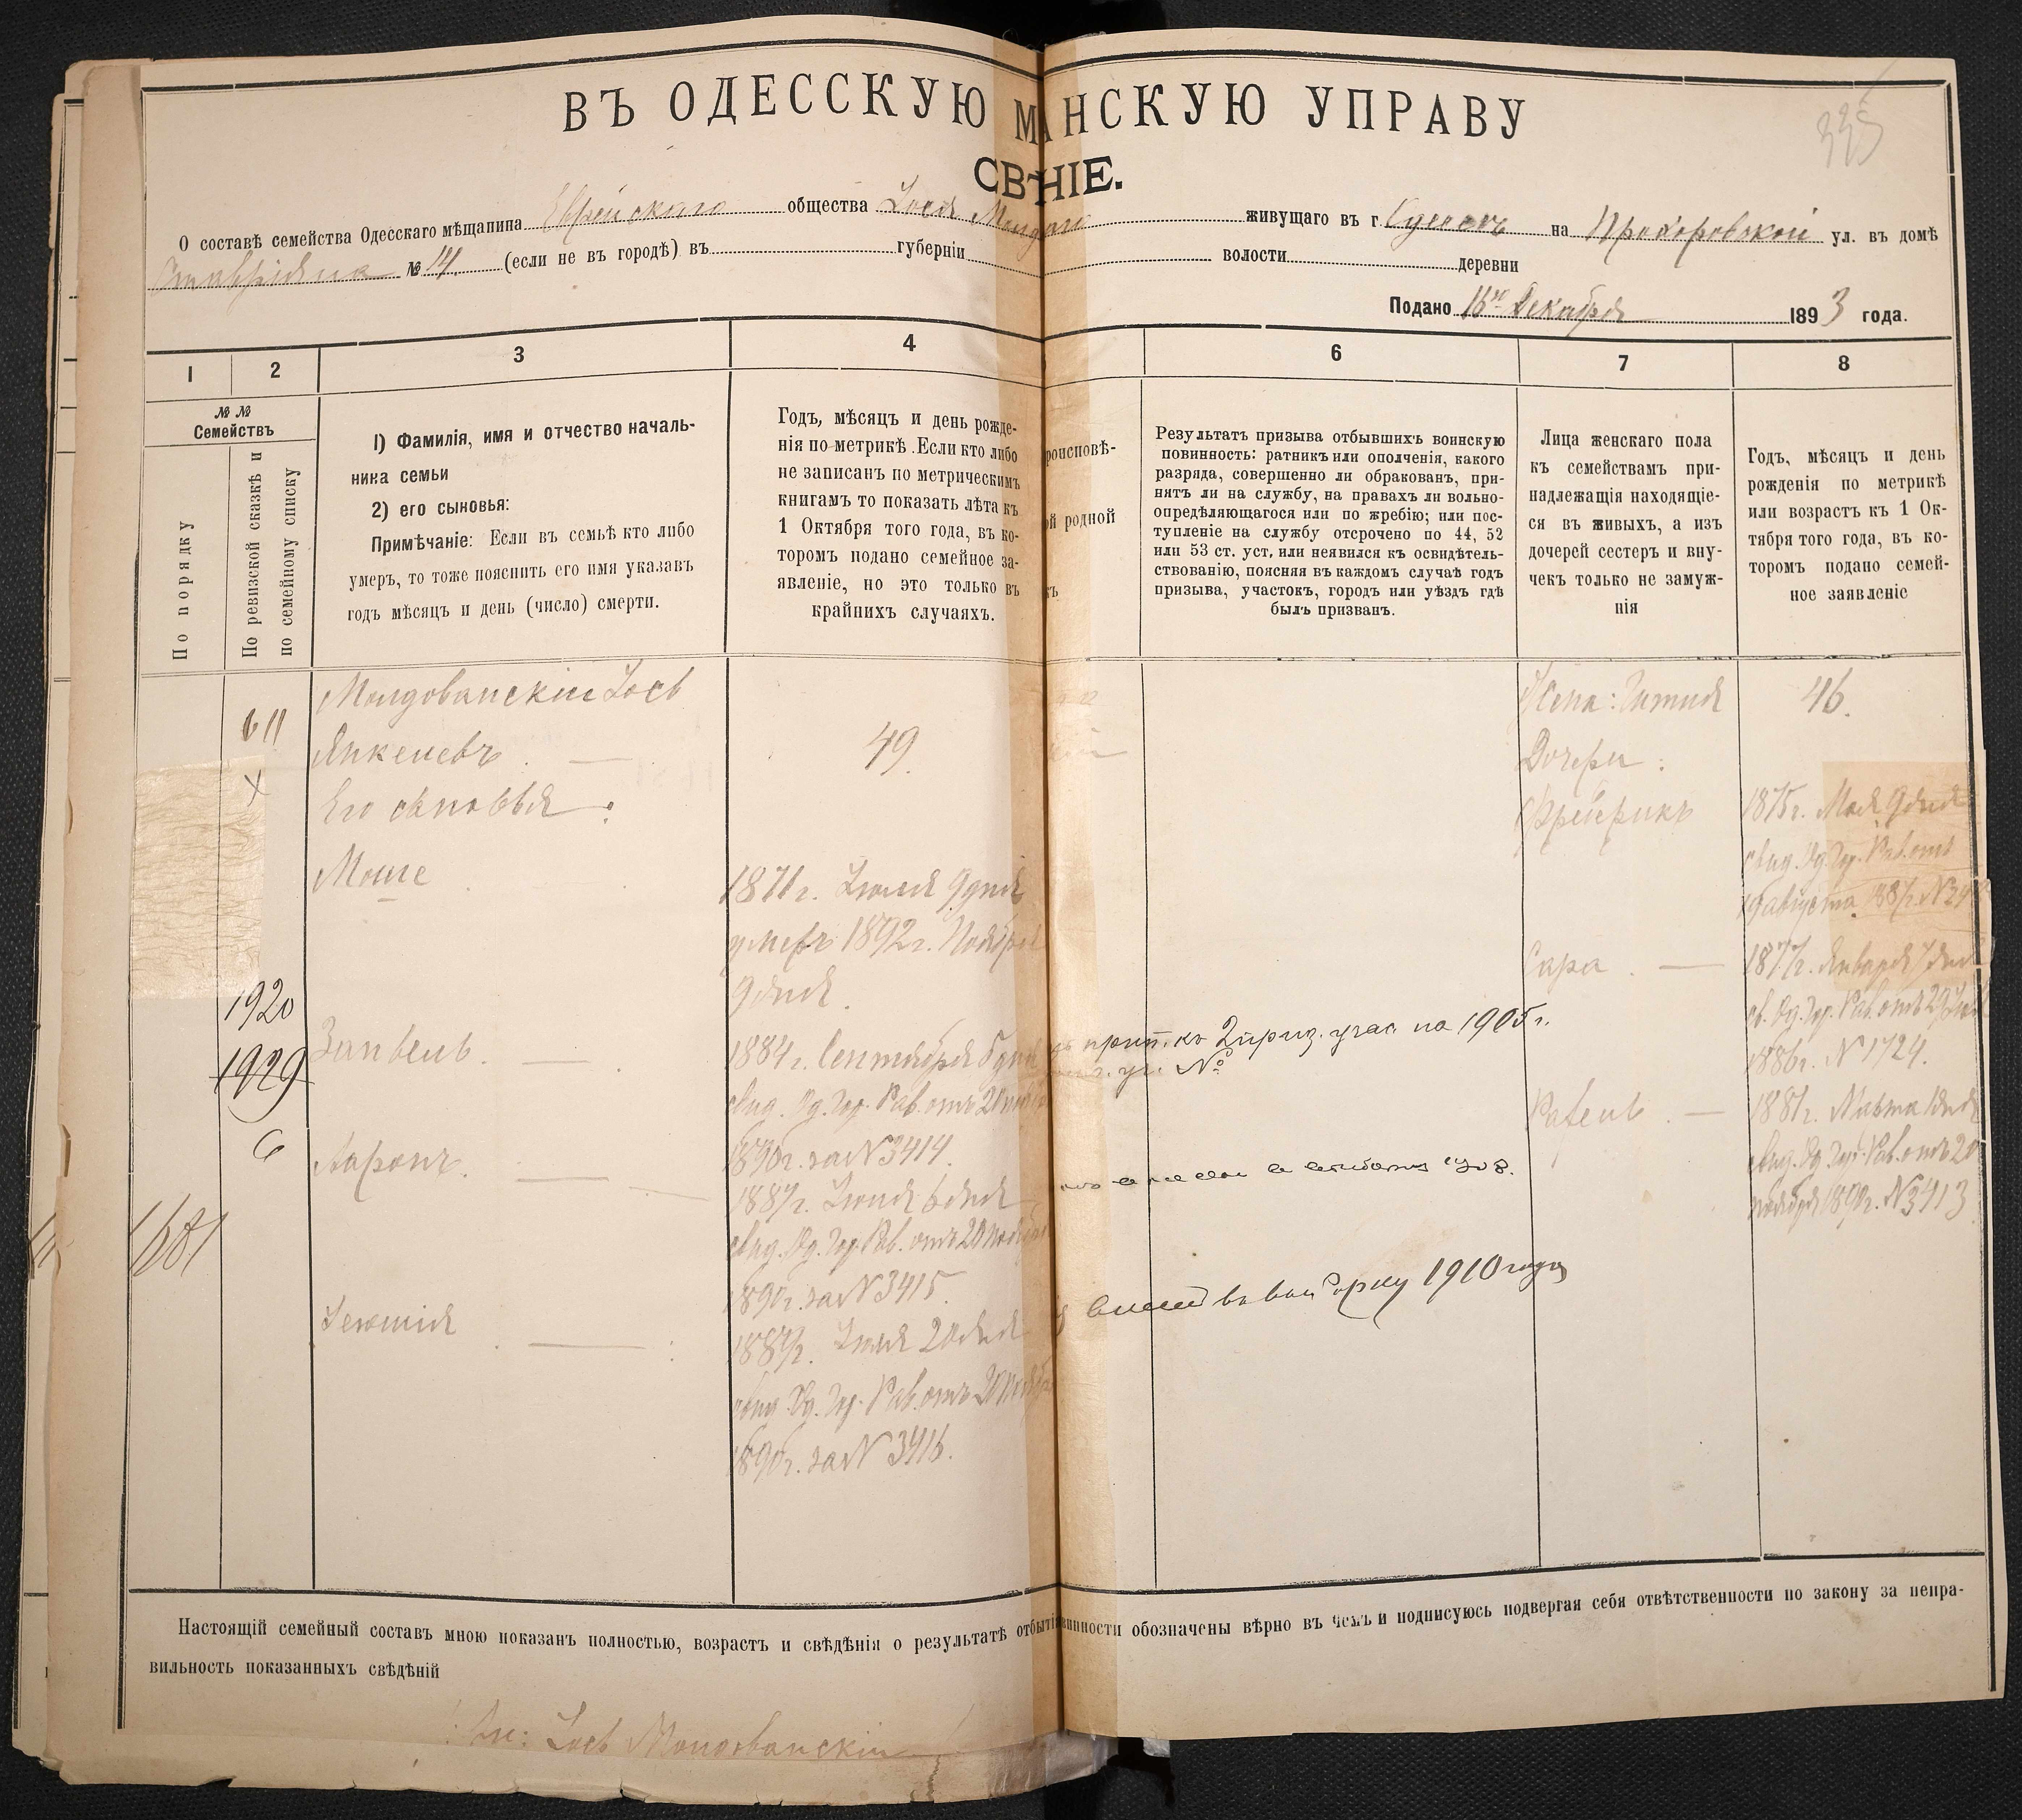 ВЪ ОДЕССКУЮ М НСКУЮ УПРАВУ
335
СВ НІЕ.
О составѣ семейства Одесскаго мѣщанина Еврейскаго общества Іося Молдован живущаго въ г. Одессѣ на Прохоровской ул. въ домѣ
№ 14. (если не въ городѣ) въ губерніи волости деревни
Подано 16го Декабря 1893 года.
1 2 3 4 6 7 8
№ №
Семействъ
По порядку
По ревизской сказкѣ и
по семейному списку
1) Фамилія, имя и отчество началь-
ника семьи
2) его сыновья:
Примѣчаніе: Если въ семьѣ кто либо
умеръ, то тоже пояснить его имя указавъ
годъ мѣсяцъ и день (число) смерти.
Годъ, мѣсяцъ и день рожде-
нія по метрикѣ. Если кто либо
не записанъ по метрическимъ
книгамъ то показать лѣта къ
1 Октября того года, въ ко-
торомъ подано семейное за-
явленіе, но это только въ
крайнихъ случаяхъ.
роисповѣ-
ой родной
Результатъ призыва отбывшихъ воинскую
повинность: ратникъ или ополченія, какого
разряда, совершенно ли обракованъ, при-
нятъ ли на службу, на правахъ ли вольно-
опредѣляющагося или по жребію; или пос-
тупленіе на службу отсрочено по 44, 52
или 53 ст. уст, или неявился къ освидѣтель-
ствованію, поясняя въ каждомъ случаѣ годъ
призыва, участокъ, городъ или уѣздъ гдѣ
былъ призванъ.
Лица женскаго пола
къ семействамъ при-
надлежащія находящіе-
ся въ живыхъ, а изъ
дочерей сестеръ и вну-
чекъ только не замуж-
нія
Годъ, мѣсяцъ и день
рожденія по метрикѣ
или возрастъ къ 1 Ок-
тября того года, въ ко-
торомъ подано семей-
ное заявленіе
611
Молдованскій Іось
Янкелевъ
49.
Его сыновья:
Моше
1871 г. Іюля 9 дня
умеръ 1892 г. Ноября
9 дня.
1920
1929
Зайвель.
1884 г. Сентября 5 дня
свид. Од. Гор. Рав. отъ 20 ноября
1890 г. за N 3414.
прип. къ 2 приз. учас. на 1905 г.
№
Ааронъ.
1887 г. Іюня 6 дня
свид. Од. Гор. Рав. отъ 20 ноября
1890 г. за N 3415.
1681
1887 г. Іюля 20 дня
свид. Од. Гор. Рав. отъ 20 Ноября
1890 г. за N 3416.
1910 года
Жена: Гитля
46.
Дочери:
Фрейерикъ
1875 г. Мая 9 дня
свид. Од. Гор. Рав. отъ
Сара.
1877 г. Января 7 дня
св. Од. Гор. Рав. отъ 29
1886 г. N 1724.
Рахель.
1881 г. Марта 1 дня
свид. Од. Гор. Рав. отъ 20
ноября 1890 г. N 3413
Настоящій семейный составъ мною показанъ полностью, возрастъ и свѣдѣнія о результатѣ отбытія винности обозначены вѣрно въ чемъ и подписуюсь подвергая себя отвѣтственности по закону за непра-
вильность показанныхъ свѣдѣній
Іось Молдованскій